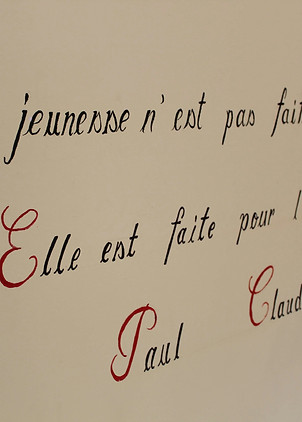 jeunesse n'est pas fait
Elle est faite pour l
Paul Claud